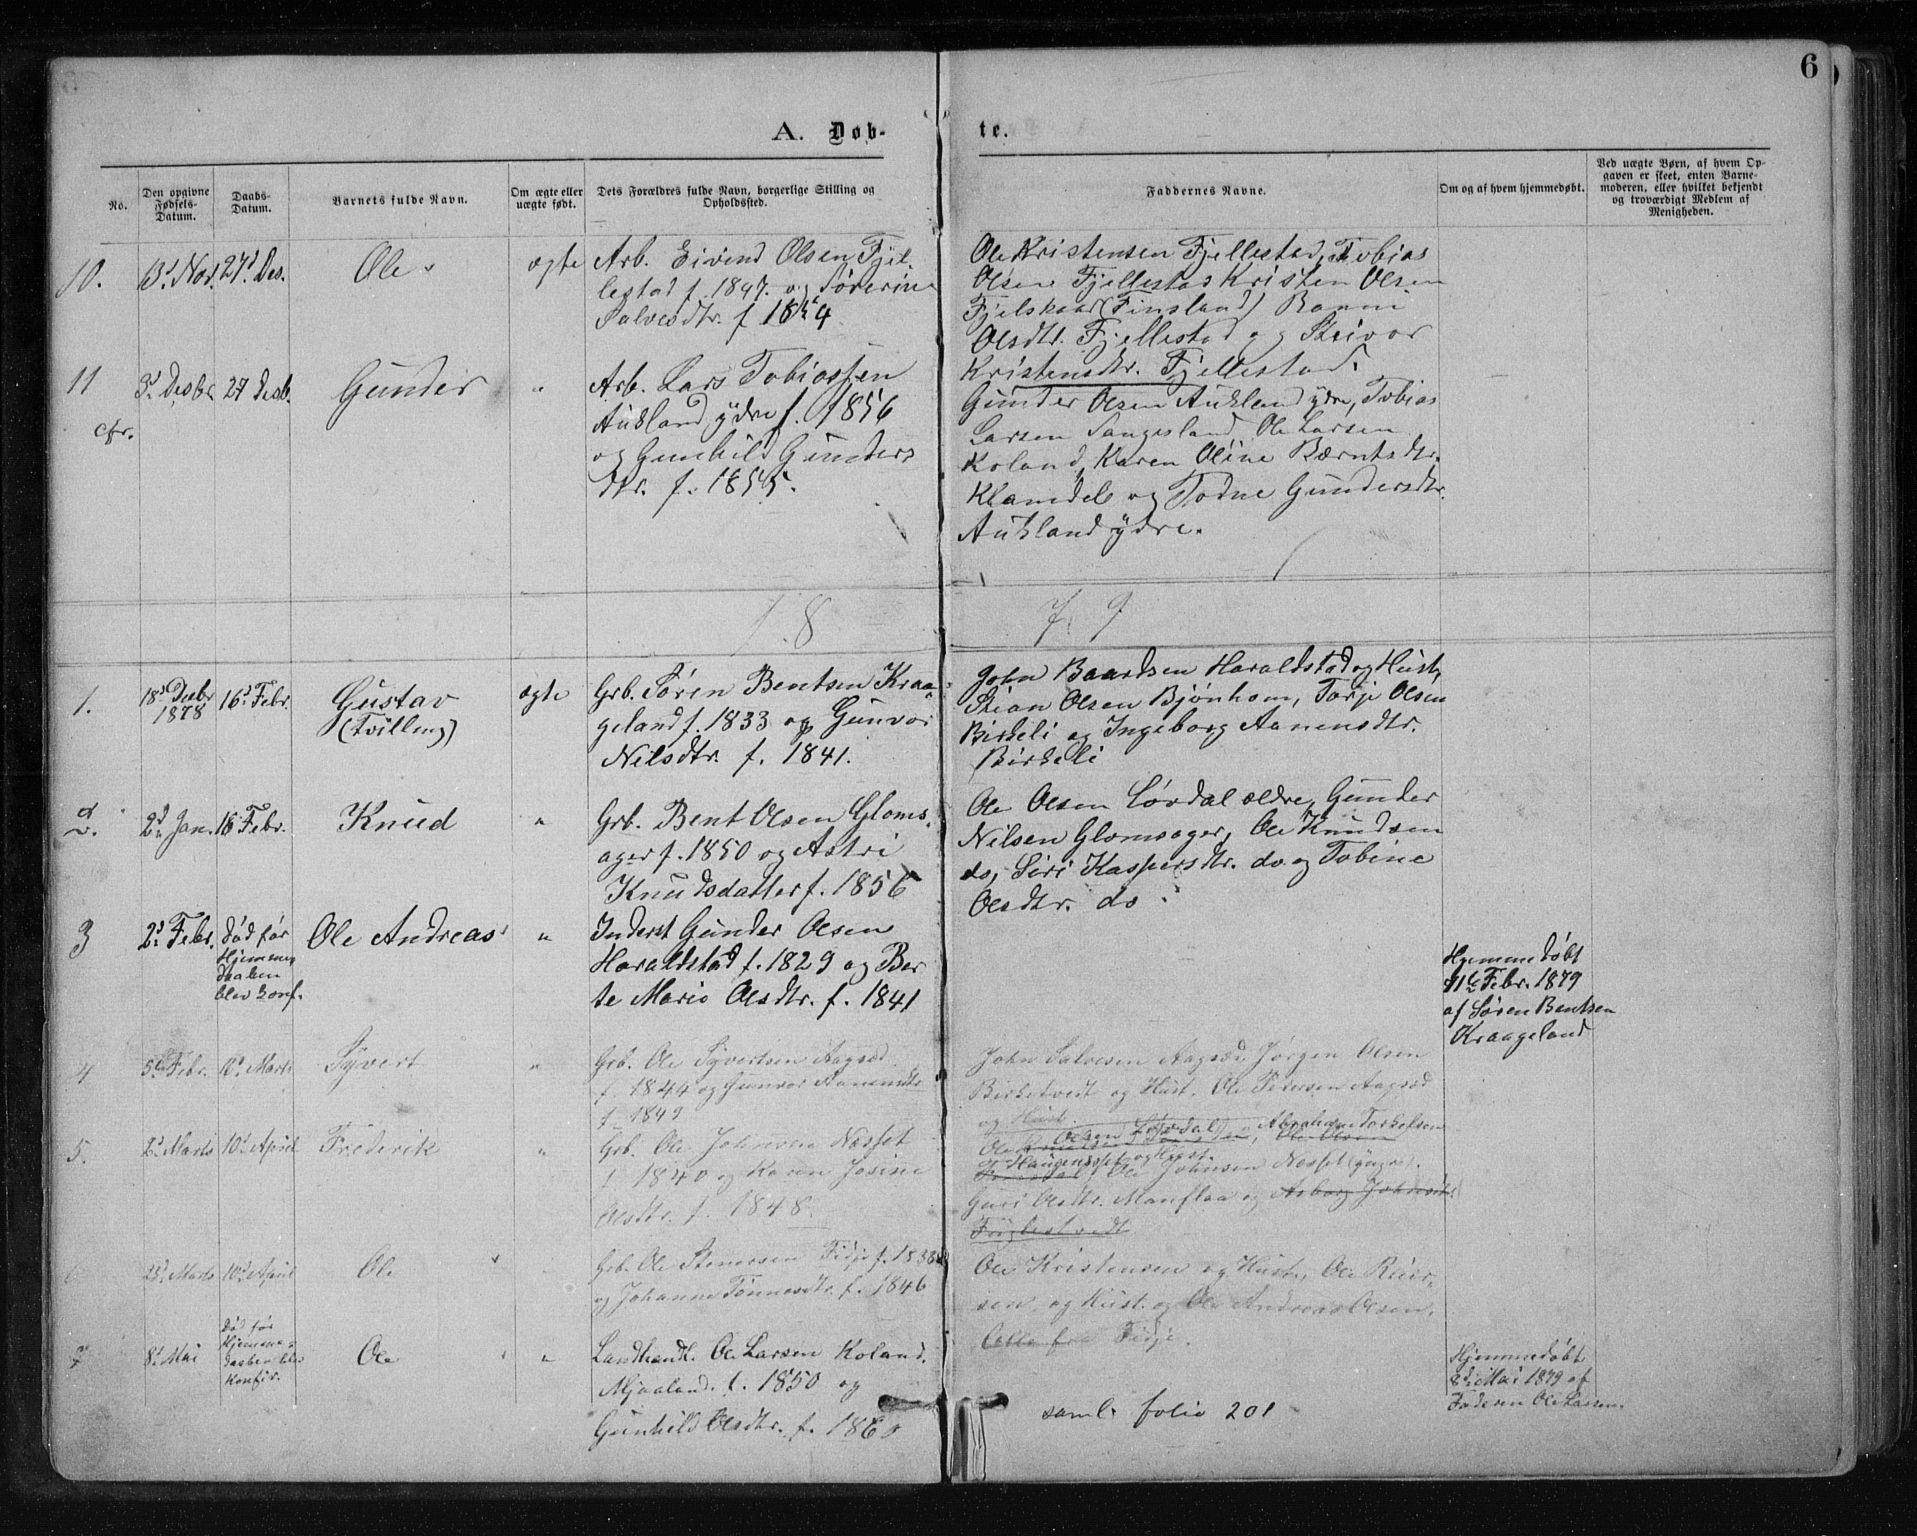 6
A. Døb-
te.
No.
Den opgivne Fødsels-Datum.
Daabs-Datum.
Barnets fulde Navn.
Om ægte eller uægte født.
Dets Forældres fulde Navn, borgerlige Stilling og Opholdsted.
Faddernes Navne.
Om og af hvem hjemmedøbt.
Ved uægte Børn, af hvem Op-
gaven er skeet, enten Barne-
moderen, eller hvilket bekjendt
og troværdigt Medlem af
Menigheden.
10.
13d Nov.
27d Des.
Ole
ægte
Arb. Eivind Olsen Fjel-
lestad f. 1847. og Sørerine
Salvesdtr. f. 18
Ole Kristensen Fjellestad, Tobias
Olsen Fjellestad Kristen Olsen
Fjelskaar (Finsland) Ranni
Olsdtr. Fjellestad og Skivor
Kristensdtr. Fjellestad.
11
cfr.
3d Desbr.
27 Desb.
Gunder
"
Arb. Lars Tobiassen
Aukland ydre f. 1856
og Gunhild Gunders
dtr. f. 1855.
Gunder Olsen Aukland ydre, Tobias
Larsen Sangesland, Ole Larsen
Koland, Karen Oline Bærntsdtr.
Klamdel og Todne Gundersdtr.
Aukland ydre.
1.8
7 9
1.
18d Desbr
1878
16d Febr.
Gustav
(Tvilling)
ægte
Grb. Søren Bentsen Kraa-
geland f. 1833 og Gunvor
Nilsdtr. f. 1841.
John Baardsen Haraldstad og Hust,
Stian Olsen Bjønhom, Torje Olsen
Birkeli og Ingeborg Aanensdtr.
Birkeli
2.
2d Jan.
16 Febr.
Knud
"
Grb. Bent Olsen Gloms-
ager f. 1850 og Astri
Knudsdatter f. 1856
Ole Olsen Løvdal ældre, Gunder
Nilsen Glomsager, Ole Knudsen
do, Siri Kaspersdtr. do og Tobine
Olsdtr. do.
3
2d Febr.
Død før
Hjemme
daaben
blev konf.
Ole Andreas
"
Inderst Gunder Olsen
Haraldstad f. 1829 og Ber
te Marie Olsdtr. f. 1841
Hjemmedøbt
11te Febr. 1879
af Søren Bentsen
Kraageland
4
5te Febr.
10d Marts
Syvert
"
Grb. Ole Syvertsen Aagsæd
f. 1844 og Gunvor Aanensdtr
f. 1849
John Salvesen Aagsæd, Jørgen Olsen
Birketvedt og Hust. Ole Petersen Aagsæd
og Hust.
5.
2d Marts
10d April
Frederik
"
Grb. Ole Johnsen Næsset
f. 1840 og Karen Josine
Olsdtr. f. 1848.
Olsen Løvdal, Abraham Torkelsen
Haugen og Hust.
Ole Johnsen Næsset (yngre).
Guri Olsdtr. Manflaa og Asborg Johnsdtr
Fuglestvedt
6
23d Marts
10d April
Ole
Grb. Ole Stenersen Fidje f. 1838
og Johanne Tønnesdtr. f. 1846
Ole Kristensen og Hust, Ole Reier-
sen og Hust. og Ole Andreas Olsen,
Alle fra Fidje.
7
8d Mai
Død før
Hjemme-
daaben blev
konfir.
Ole
"
Landhandl. Ole Larsen Koland.
Mjaaland. f. 1850 og
Gunhild Olsdtr. f. 1860
saml. folio 201
Hjemmedøbt
8d Mai 1879 af
Faderen Ole Larsen.